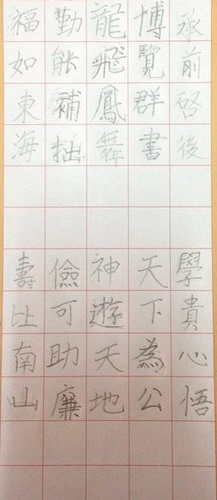 承前啓後
博覽群書
龍飛鳳舞
勤能補拙
福如東海
學貴心悟
天下為公
神遊天地
儉可助廉
壽比南山